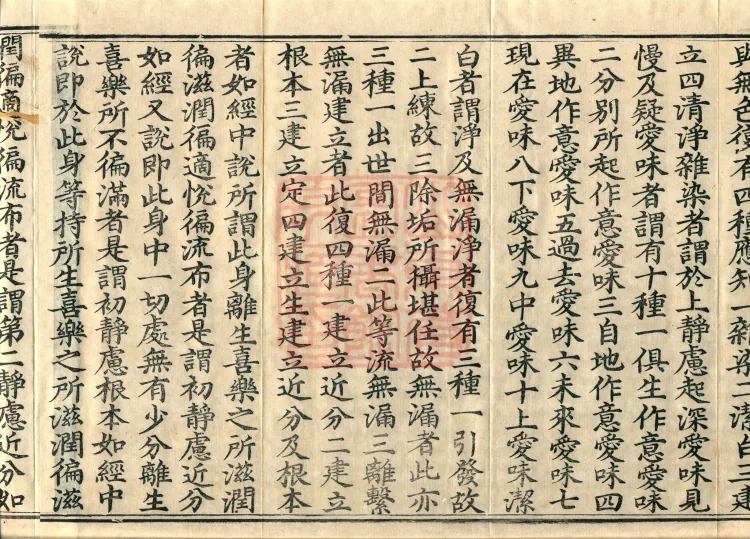 與無色復有四種應知一雜染二潔白三建
立四清淨雜染者謂於上靜慮起深愛味見
慢及疑愛味者謂有十種一俱生作意愛味
二分別所起作意愛味三自地作意愛味四
異地作意愛味五過去愛味六未來愛味七
現在愛味八下愛味九中愛味十上愛味潔
白者謂淨及無漏淨者復有三種一引發故
二上練故三除垢所攝堪任故無漏者此亦
三種一出世間無漏二此等流無漏三離繫
無漏建立者此復四種一建立近分二建立
根本三建立定四建立生建立近分及根本
者如經中說所謂此身離生喜樂之所滋潤
徧滋潤徧適悅徧流布者是謂初靜慮近分
如經又說即此身中一切處無有少分離生
喜樂所不徧滿者是謂初靜慮根本如經中
說即於此身等持所生喜樂之所滋潤徧滋
潤徧適悅徧流布者是謂第二靜慮近分如